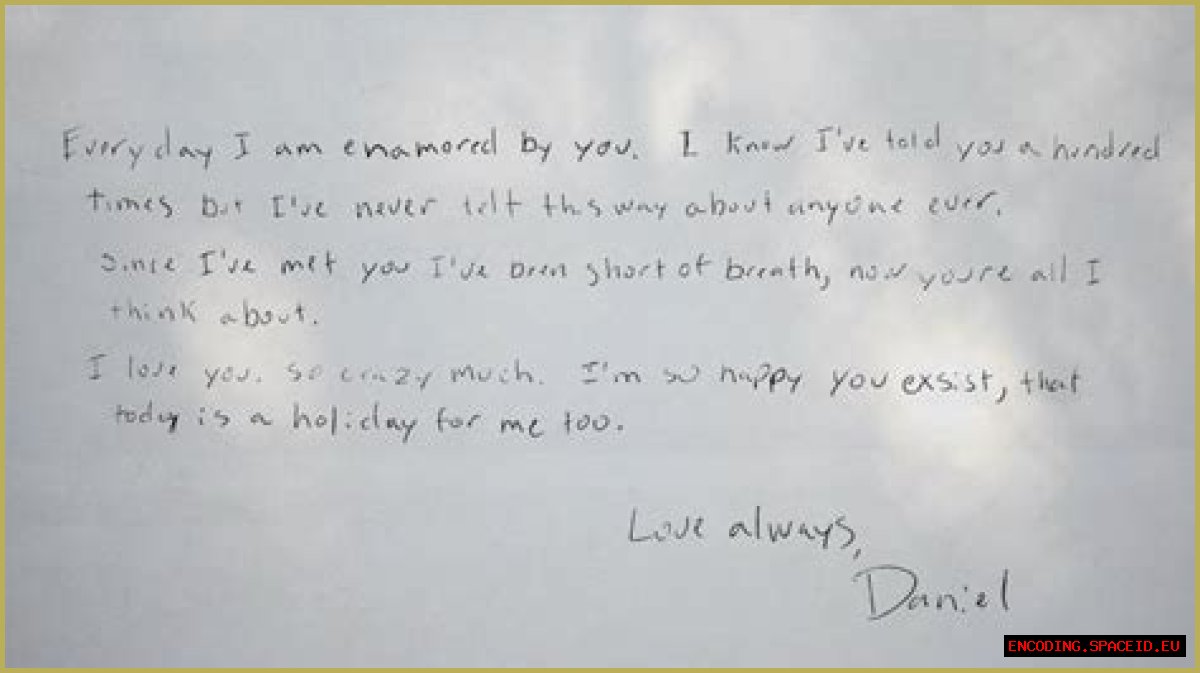 Everyday I am enamored by you. I know I've told you a hundred
times but I've never felt this way about anyone ever.
Since I've met you I've been short of breath, now you're all I
think about.
I love you. so crazy much. I'm so happy you exsist, that
today is a holiday for me too.
Love always,
Daniel
ENCODING.SPACEID.EU